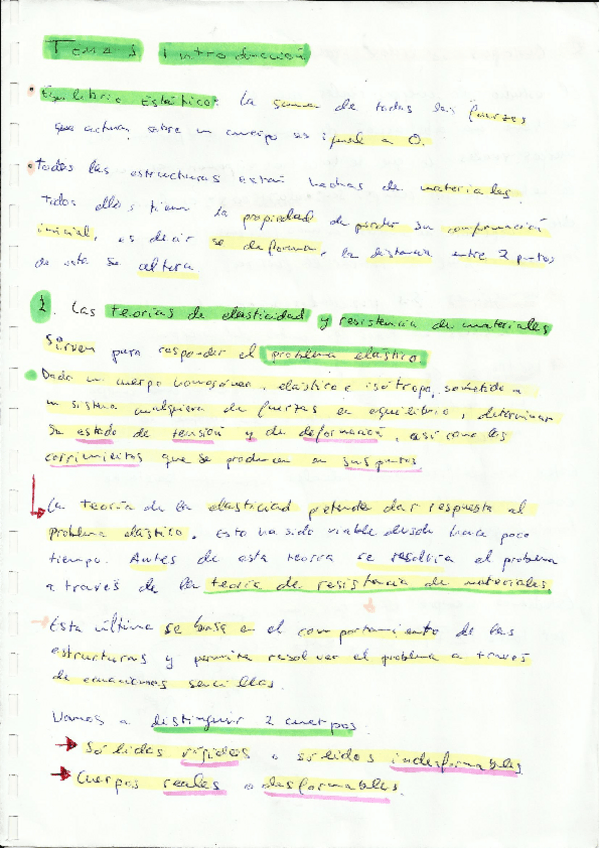 Tema 1 introducción
• Equilibrio Estático: La suma de todas las fuerzas
que actuan sobre un cuerpo es igual a 0.
• Todas las estructuras estan hechas de materiales.
Todos ellos tienen la propiedad de perder su conformación
inicial, es decir se deforman, la distancia entre 2 puntos
de este se altera
1. Las teorías de elasticidad y resistencia de materiales
Sirven para responder el problema elástico.
Dado un cuerpo homogéneo, elástico e isótropo, sometido a
un sistema cualquiera de fuerzas en equilibrio, determinar
su estado de tensión y de deformación, así como los
corrimientos que se producen en sus puntos
La teoría de la elasticidad pretende dar respuesta al
problema elástico. Esto ha sido viable desde hace poco
tiempo. Antes de esta teoría se resolvía el problema
a través de la teoría de resistencia de materiales.
Esta última se basa en el comportamiento de las
estructuras y permite resolver el problema a través
de ecuaciones sencillas.
Vamos a distinguir 2 cuerpos
Sólidos rígidos o sólidos indeformables
Cuerpos reales o desformables.